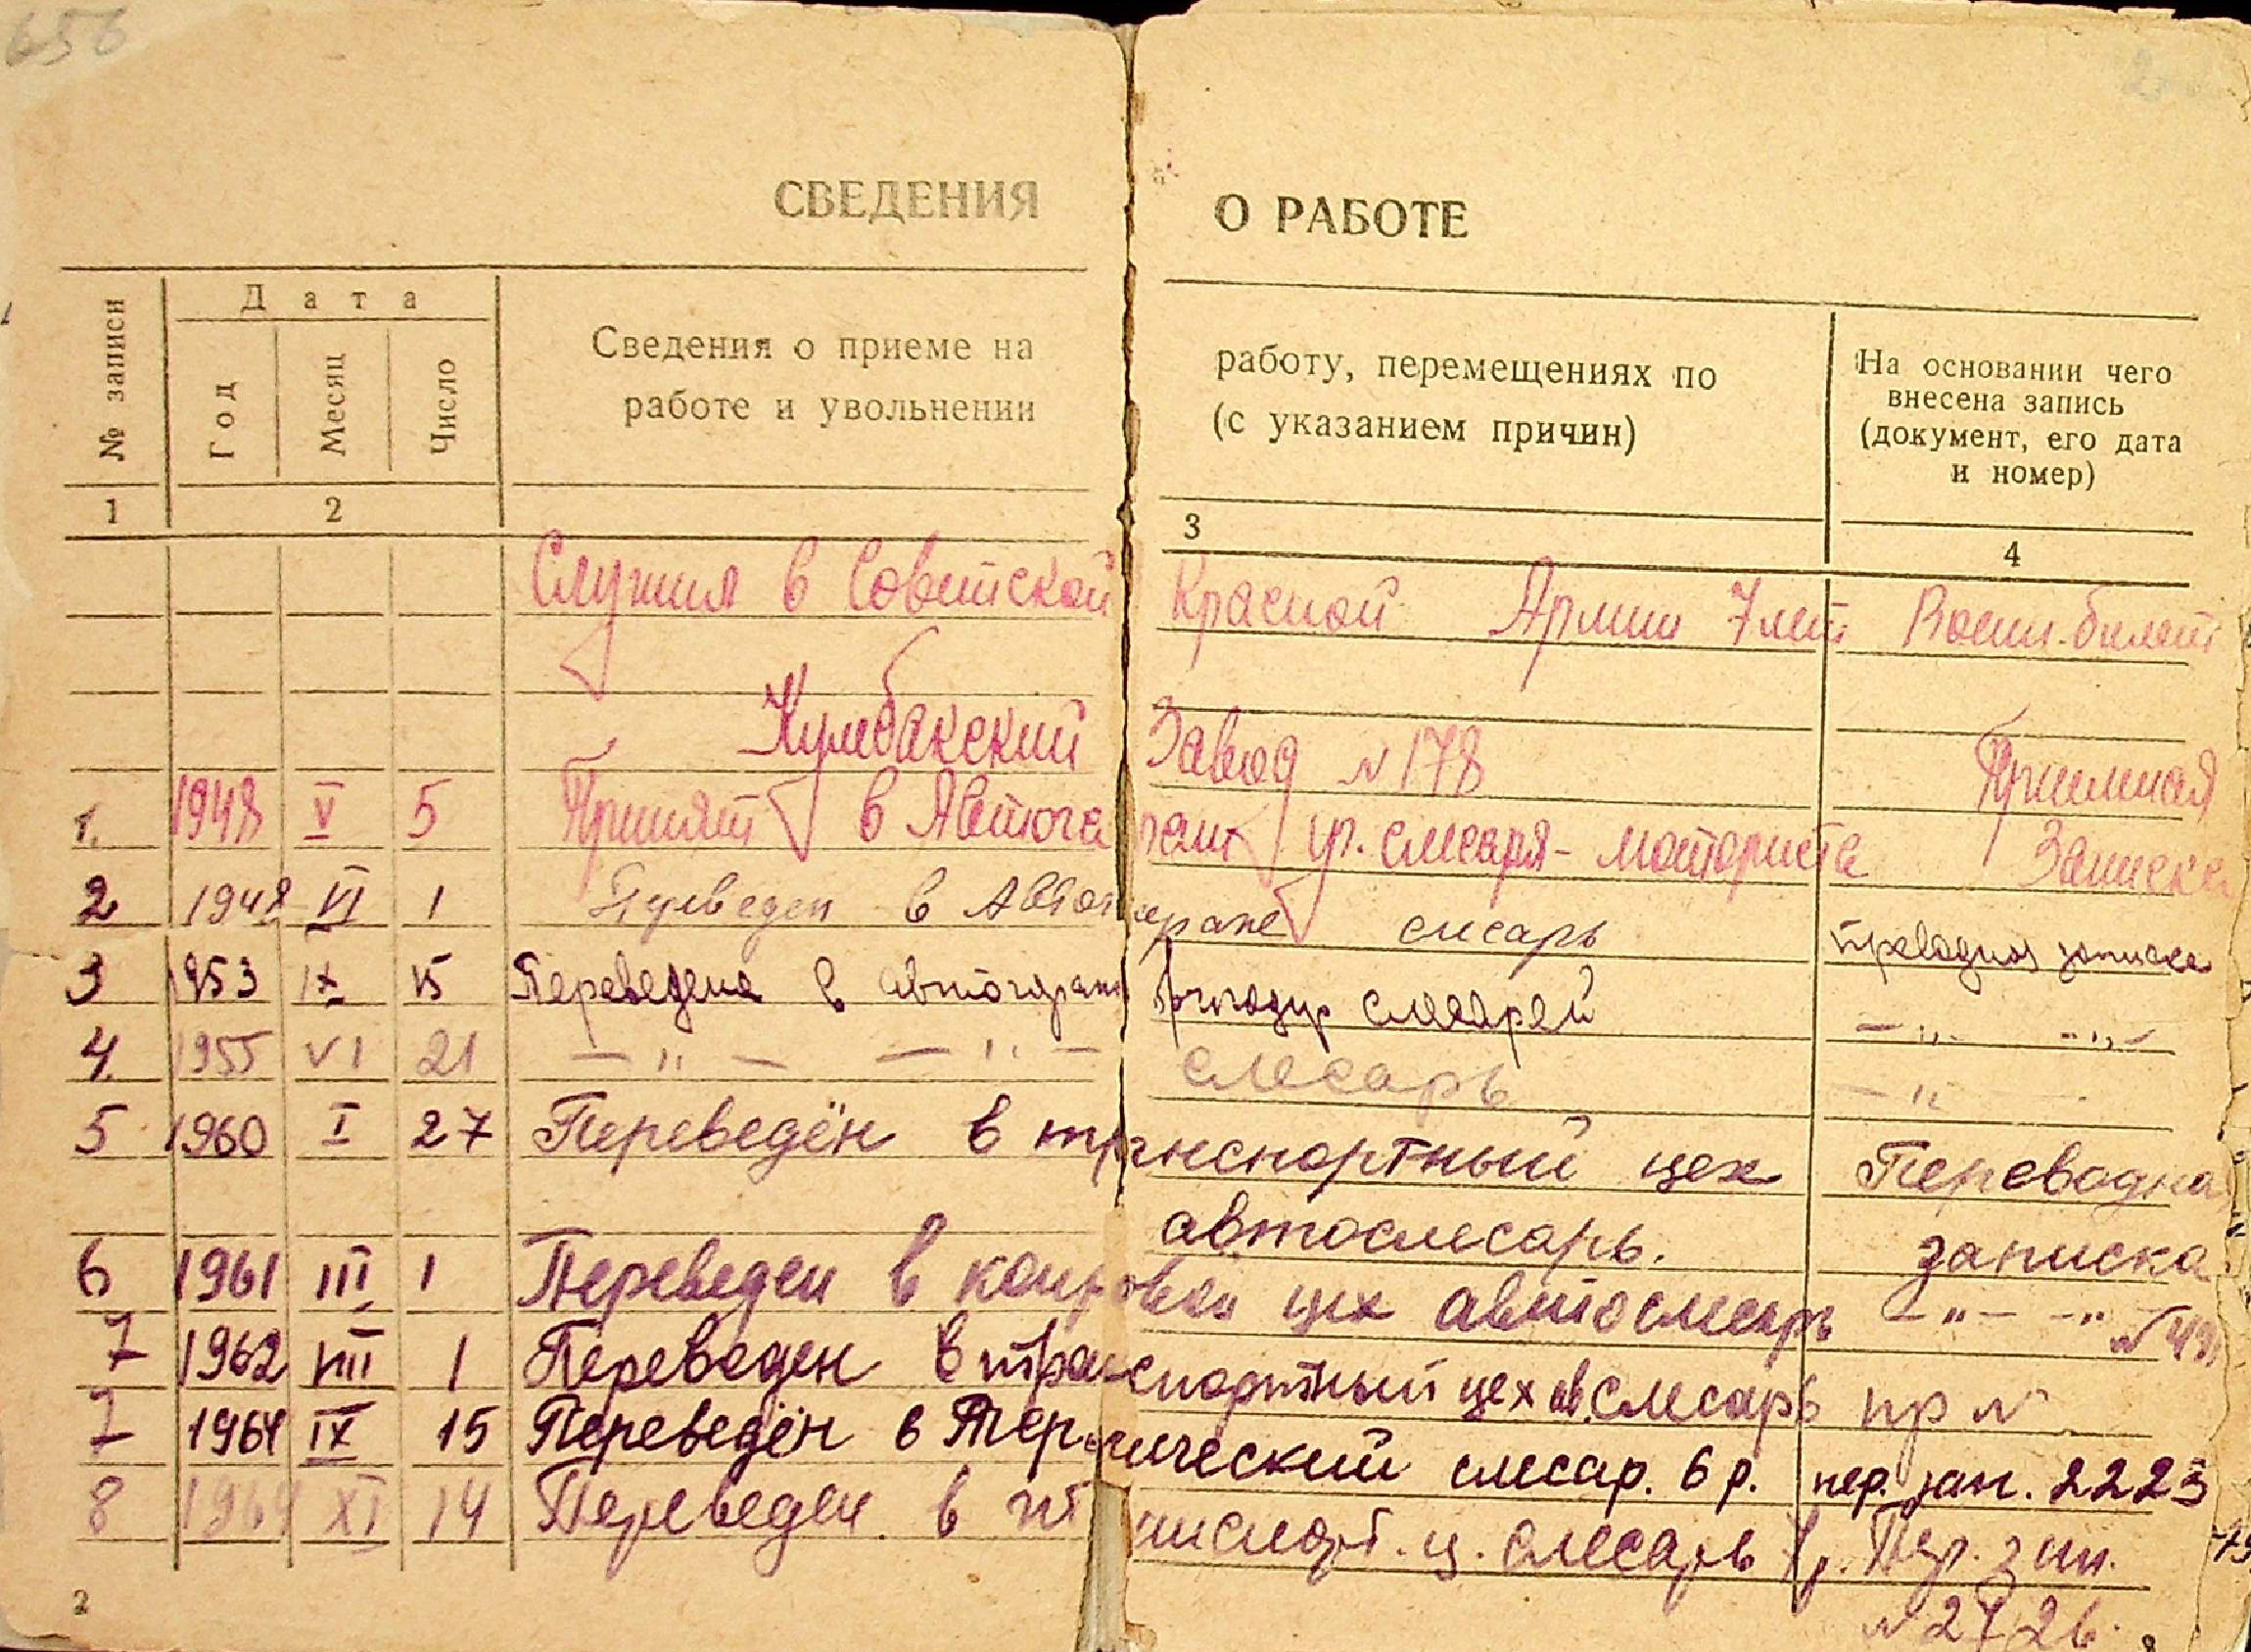 656
СВЕДЕНИЯ О РАБОТЕ
№ записи
Дата
Год
Месяц
Число
Сведения о приеме на работу, перемещениях по
работе и увольнении (с указанием причин)
На основании чего
внесена запись
(документ, его дата
и номер)
1 2 3 4
Служил в Советской Красной Армии 7 лет Воен. билет
Кулебакский Завод № 178 Приемная
1. 1948 V 5 Принят в Автогараж уч. слесаря-моториста Записка
2 1948 VI 1 Переведен в Автогараже слесарь
3 1953 IX 15 Переведена в автогараж бригадир слесарей — " — — " —
4. 1955 VI 21 — " — — " — слесарь — " —
5 1960 I 27 Переведён в транспортный цех Переводна
автослесарь. записка
6 1961 III 1 Переведен в цех автослесарь — " — — "
7 1962 VIII 1 Переведен в транспортный цех ав. слесарь пр №
7 1964 IX 15 Переведён в Термический слесар. 6 р. пер. зап. 2223
8 1964 XI 14 Переведен в ц. слесарь Пер. зап.
№ 2726.
2